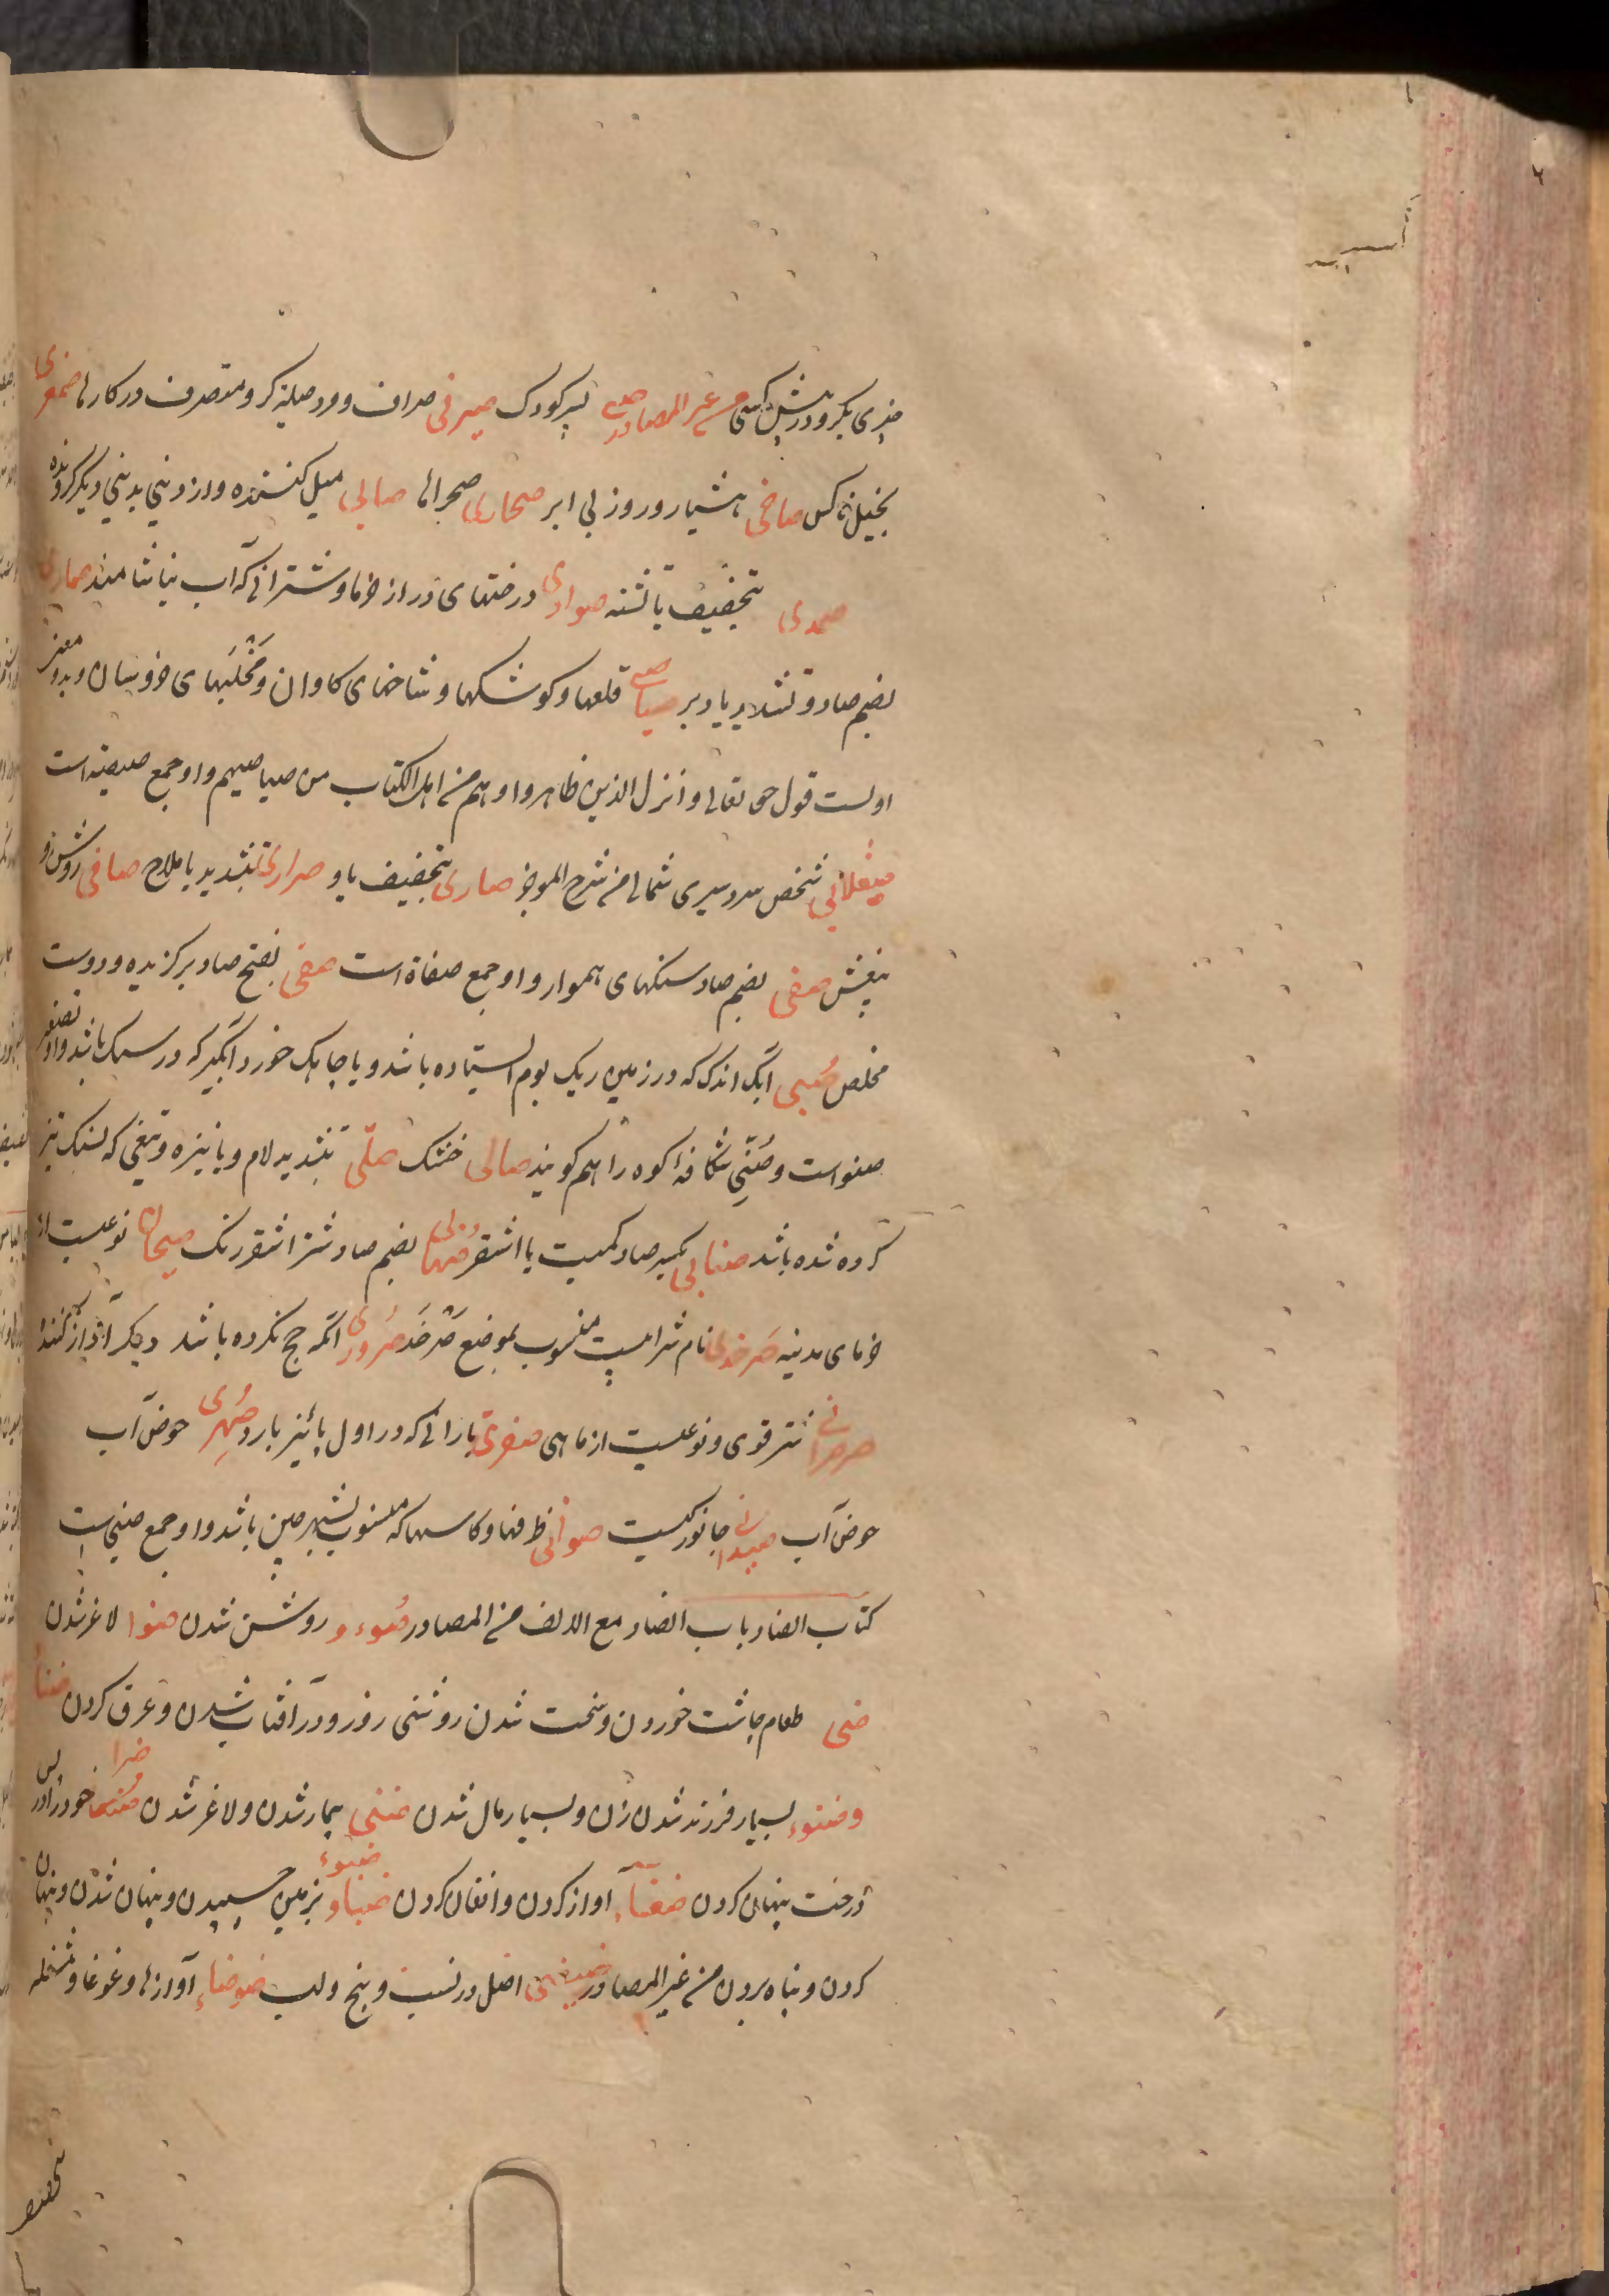 چیزی بکرو در پیش کسی من غیر المصادر صبی پسر کودک صیرفی صراف و مرد حیله کر و متصرف در کارها صمعری
بخیل ناکس صاخی هشیار و روز بی ابر صحاری صحراها صابی میل کننده و از دینی بدینی دیگر کرونده
صدی بتخفیف یا تشنه صوادی درختهای دراز خرما و شترانی که آب نیاشامند صماری
بضم صاد و تشدید یا دبر صیاصی قلعها و کوشکها و شاخهای کاوان و مخلبهای خروسان و بدو معنی
اولست قول حق تعالی و انزل الذین ظاهروا و هم من اهل الکتاب من صیاصیهم و او جمع صیصیه است
صقلابی شخص سردسیری شمالی من شرح الموجز صاری بتخفیف یا و صراری بتشدید یا ملاح صافی روشن و
بیغش صفی بضم صاد سنکهای هموار و او جمع صفاة است صفی بفتح صاد برکزیده و دوست
مخلص صبی آبک اندک که در زمین ریک بوم ایستاده باشد و یا چاهک خورد آبگیر که در سنک باشد و او تصغیر
صنو است و صنی شکاف کوه را هم کویند صالی خشک صلّی بتشدید لام و یا نیزه و تیغی که بسنک تیز
کرده شده باشد صنابی بکسر صاد کمیت یا اشقر صهابی بضم صاد شتر اشقر رنک صیحانی نوعیست از
خرمای مدینه صرخدی نام شرابیست منسوب بموضع صرخد صروری آنکه حج نکرده باشد دیکر آواز کننده
صرصرانی شتر قوی و نوعیست از ماهی صفری بارانی که در اول پائیز بارد صهری حوض آب
حوض آب صیدانی جانورکیست صوانی ظرفها و کاسها که منسوب بشهر چین باشد و او جمع صینی است
کتاب الضاد باب الضاد مع الالف من المصادر ضوء و روشن شدن ضوا لاغر شدن
ضحی طعام چاشت خوردن و سخت شدن روشنی روز و در آفتاب شدن و عرق کردن ضنأ
و ضنوء بسیار فرزند شدن زن و بسیار مال شدن ضنی بیمار شدن و لاغر شدن ضرا خود را در پس
درخت پنهان کردن ضغآء آواز کردن و افغان کردن ضبأ و ضبوء بزمین چسپیدن و پنهان شدن و پنهان
کردن و پناه بردن من غیر المصادر ضیضی اصل در نسب و بیخ و لب ضوضاء آوازها و غوغا و مشغله